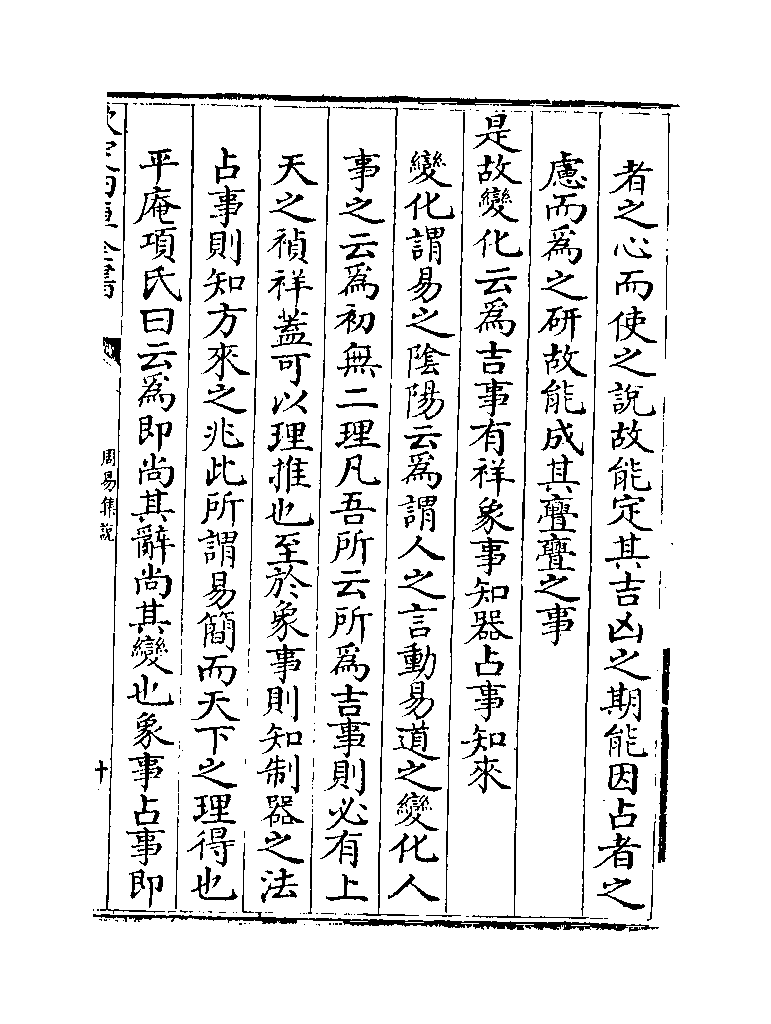 者之心而使之說故能定其吉凶之期能因占者之
慮而爲之研故能成其亹亹之事
是故變化云爲吉事有祥象事知器占事知來
變化謂易之陰陽云爲謂人之言動易道之變化人
事之云爲初無二理凡吾所云所爲吉事則必有上
天之禎祥蓋可以理推也至於象事則知制器之法
占事則知方來之兆此所謂易簡而天下之理得也
平庵項氏曰云爲即尚其辭尚其變也象事占事即
周易集說
十